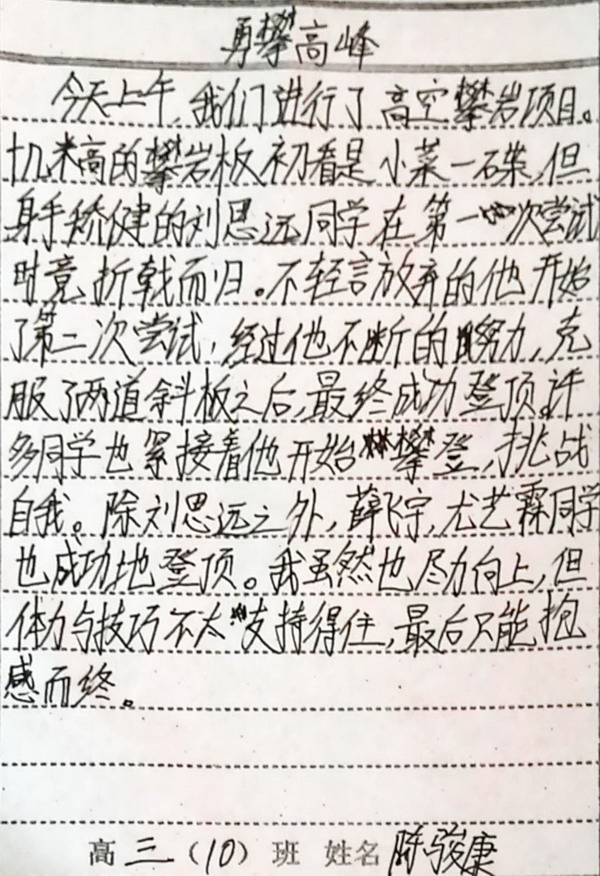 勇攀高峰
今天上午,我们进行了高空攀岩项目。
十几米高的攀岩板初看是小菜一碟,但
身手矫健的刘思远同学在第一次尝试
时竟折戟而归。不轻言放弃的他开始
了第二次尝试,经过他不断的努力,克
服了两道斜板之后,最终成功登顶。许
多同学也紧接着他开始攀登,挑战
自我。除刘思远之外,薛飞宇,尤艺霖同学
也成功地登顶。我虽然也尽力向上,但
体力与技巧不太支持得住,最后只能抱
憾而终。
高三(10)班 姓名 陈骏康